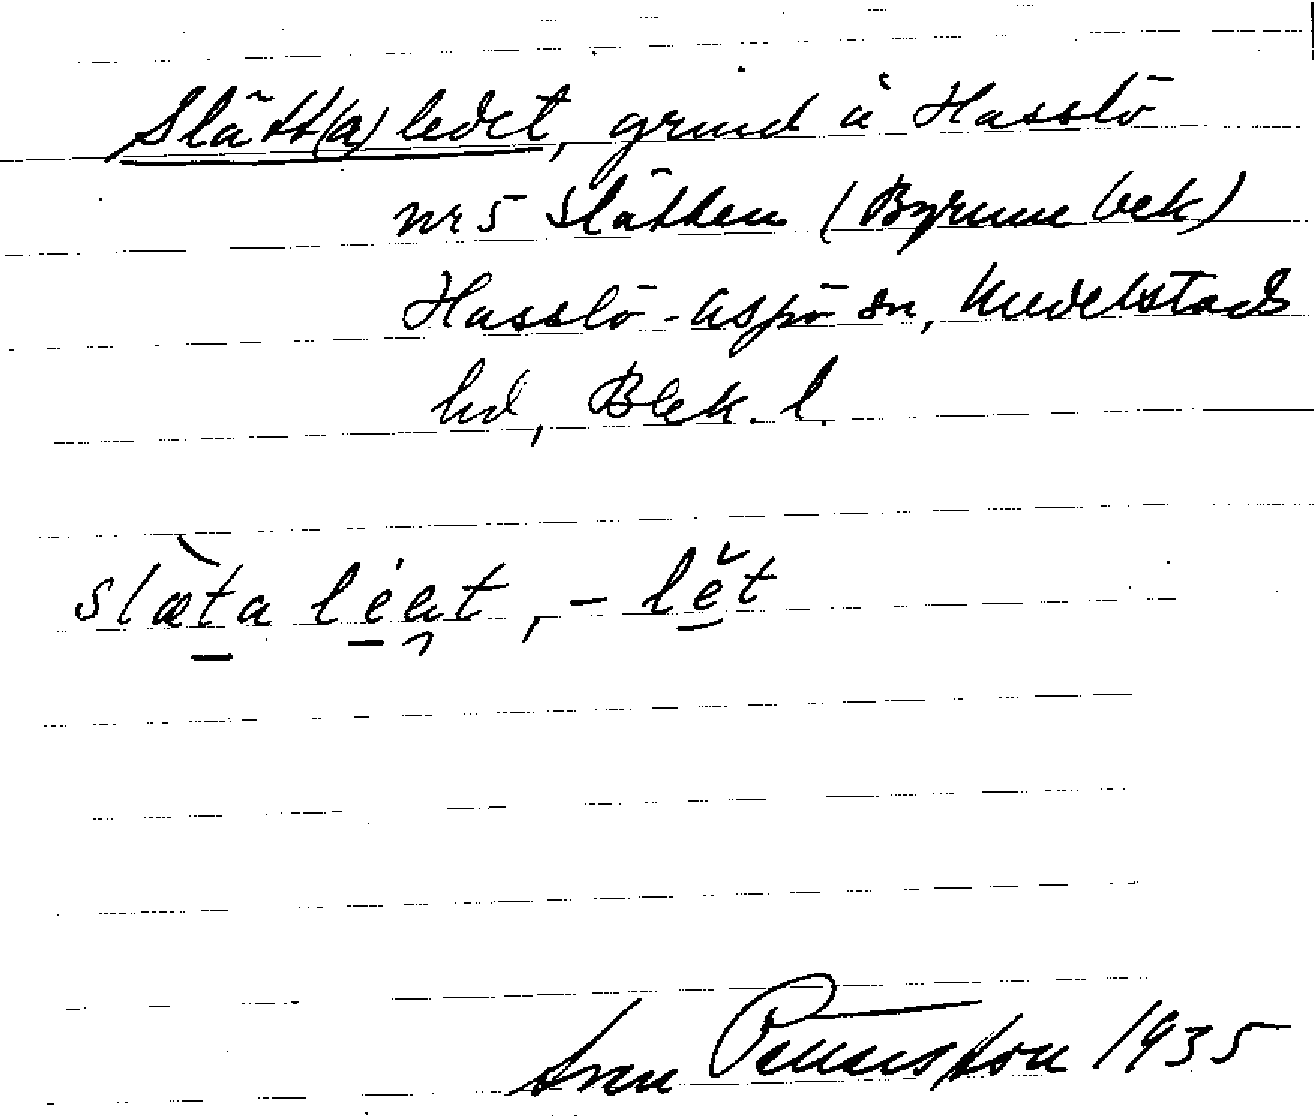 Slätt(a)ledet, grund å Hasslö
nr 5 Slätten (Byrumu bek)
Hasslö-Aspö sn, Medelstads
hd, Blek. l.
slæta léət, - lĕt
Sven 1935